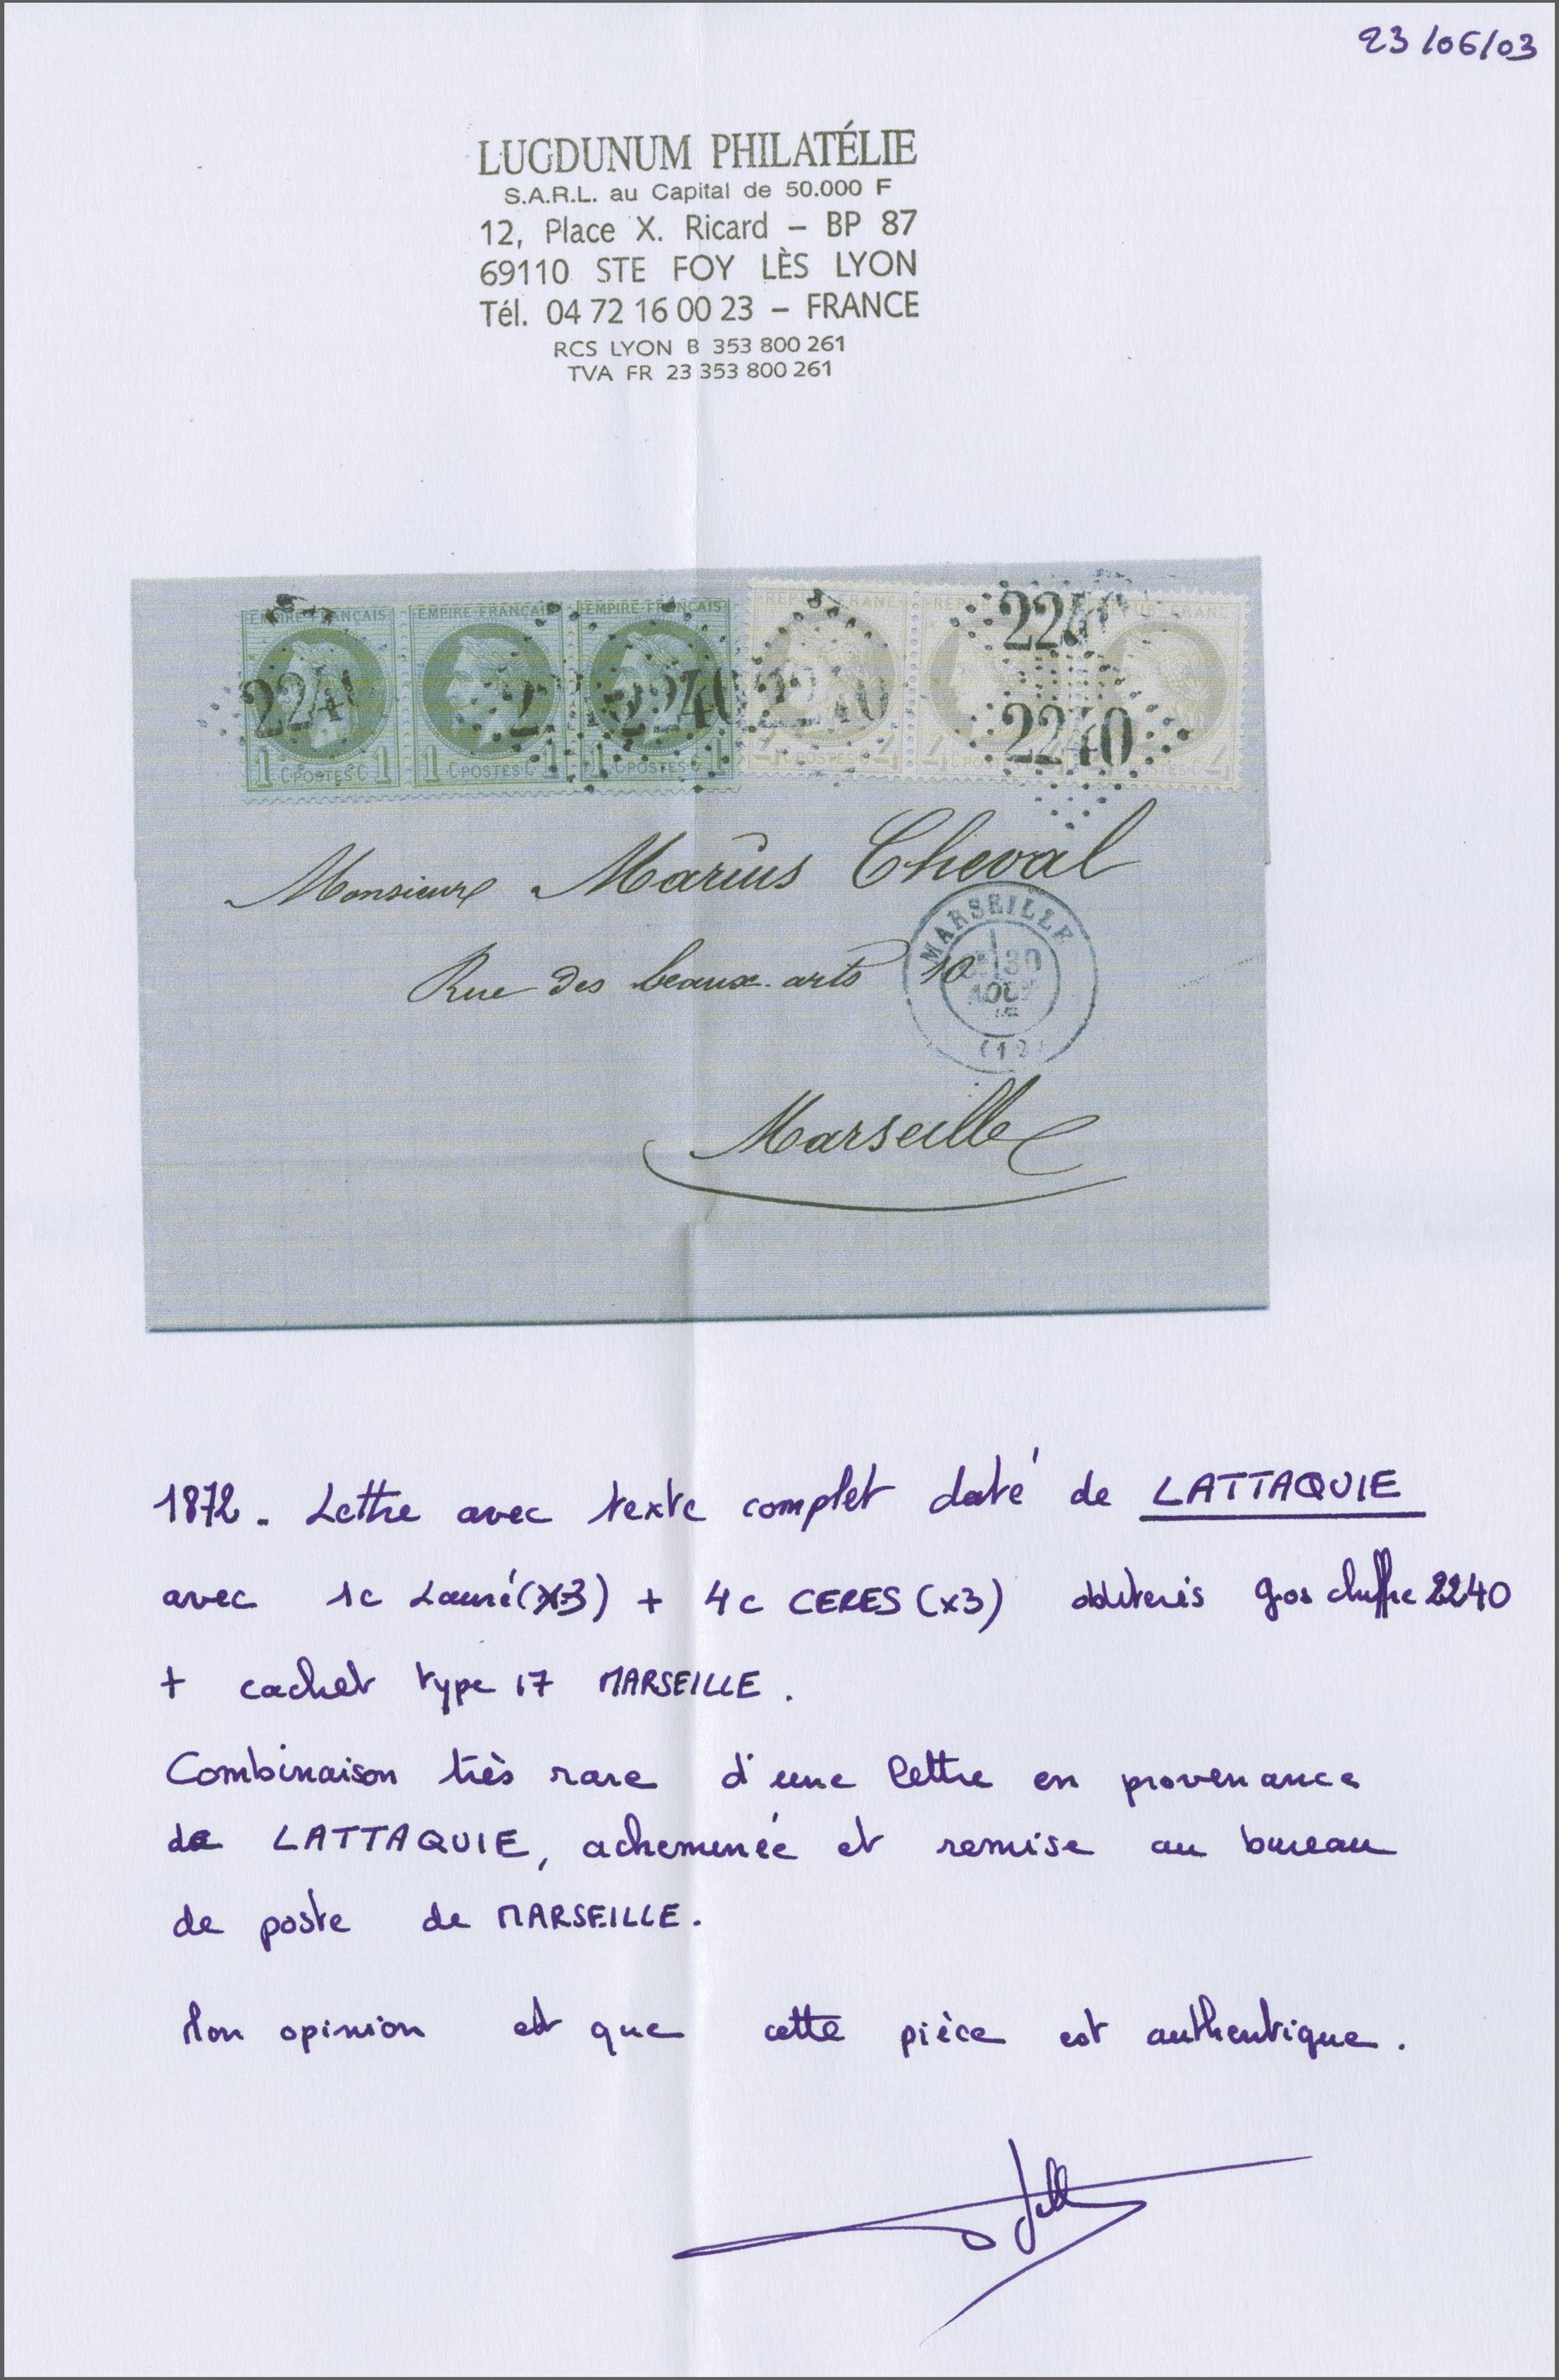 23/06/03
LUGDUNUM PHILATÉLIE
S.A.R.L. au Capital de 50.000 F
12, Place X. Ricard – BP 87
69110 STE FOY LÈS LYON
Tél. 04 72 16 00 23 – FRANCE
RCS LYON B 353 800 261
TVA FR 23 353 800 261
EMPIRE FRANÇAIS EMPIRE FRANÇAIS EMPIRE FRANÇAIS
2240 2240 2240 2240 2240
1 C POSTES C 1 1 C POSTES C 1 1 C POSTES C 1
Monsieur Marius Cheval
Rue des beaux-arts 10
MARSEILLE
30
AOUT
(12)
Marseille
1872. Lettre avec texte complet daté de LATTAQUIE
avec 1c Lauré (x3) + 4c CERES (x3) oblitérés gros chiffre 2240
+ cachet type 17 MARSEILLE.
Combinaison très rare d'une lettre en provenance
de LATTAQUIE, acheminée et remise au bureau
de poste de MARSEILLE.
Mon opinion est que cette pièce est authentique.